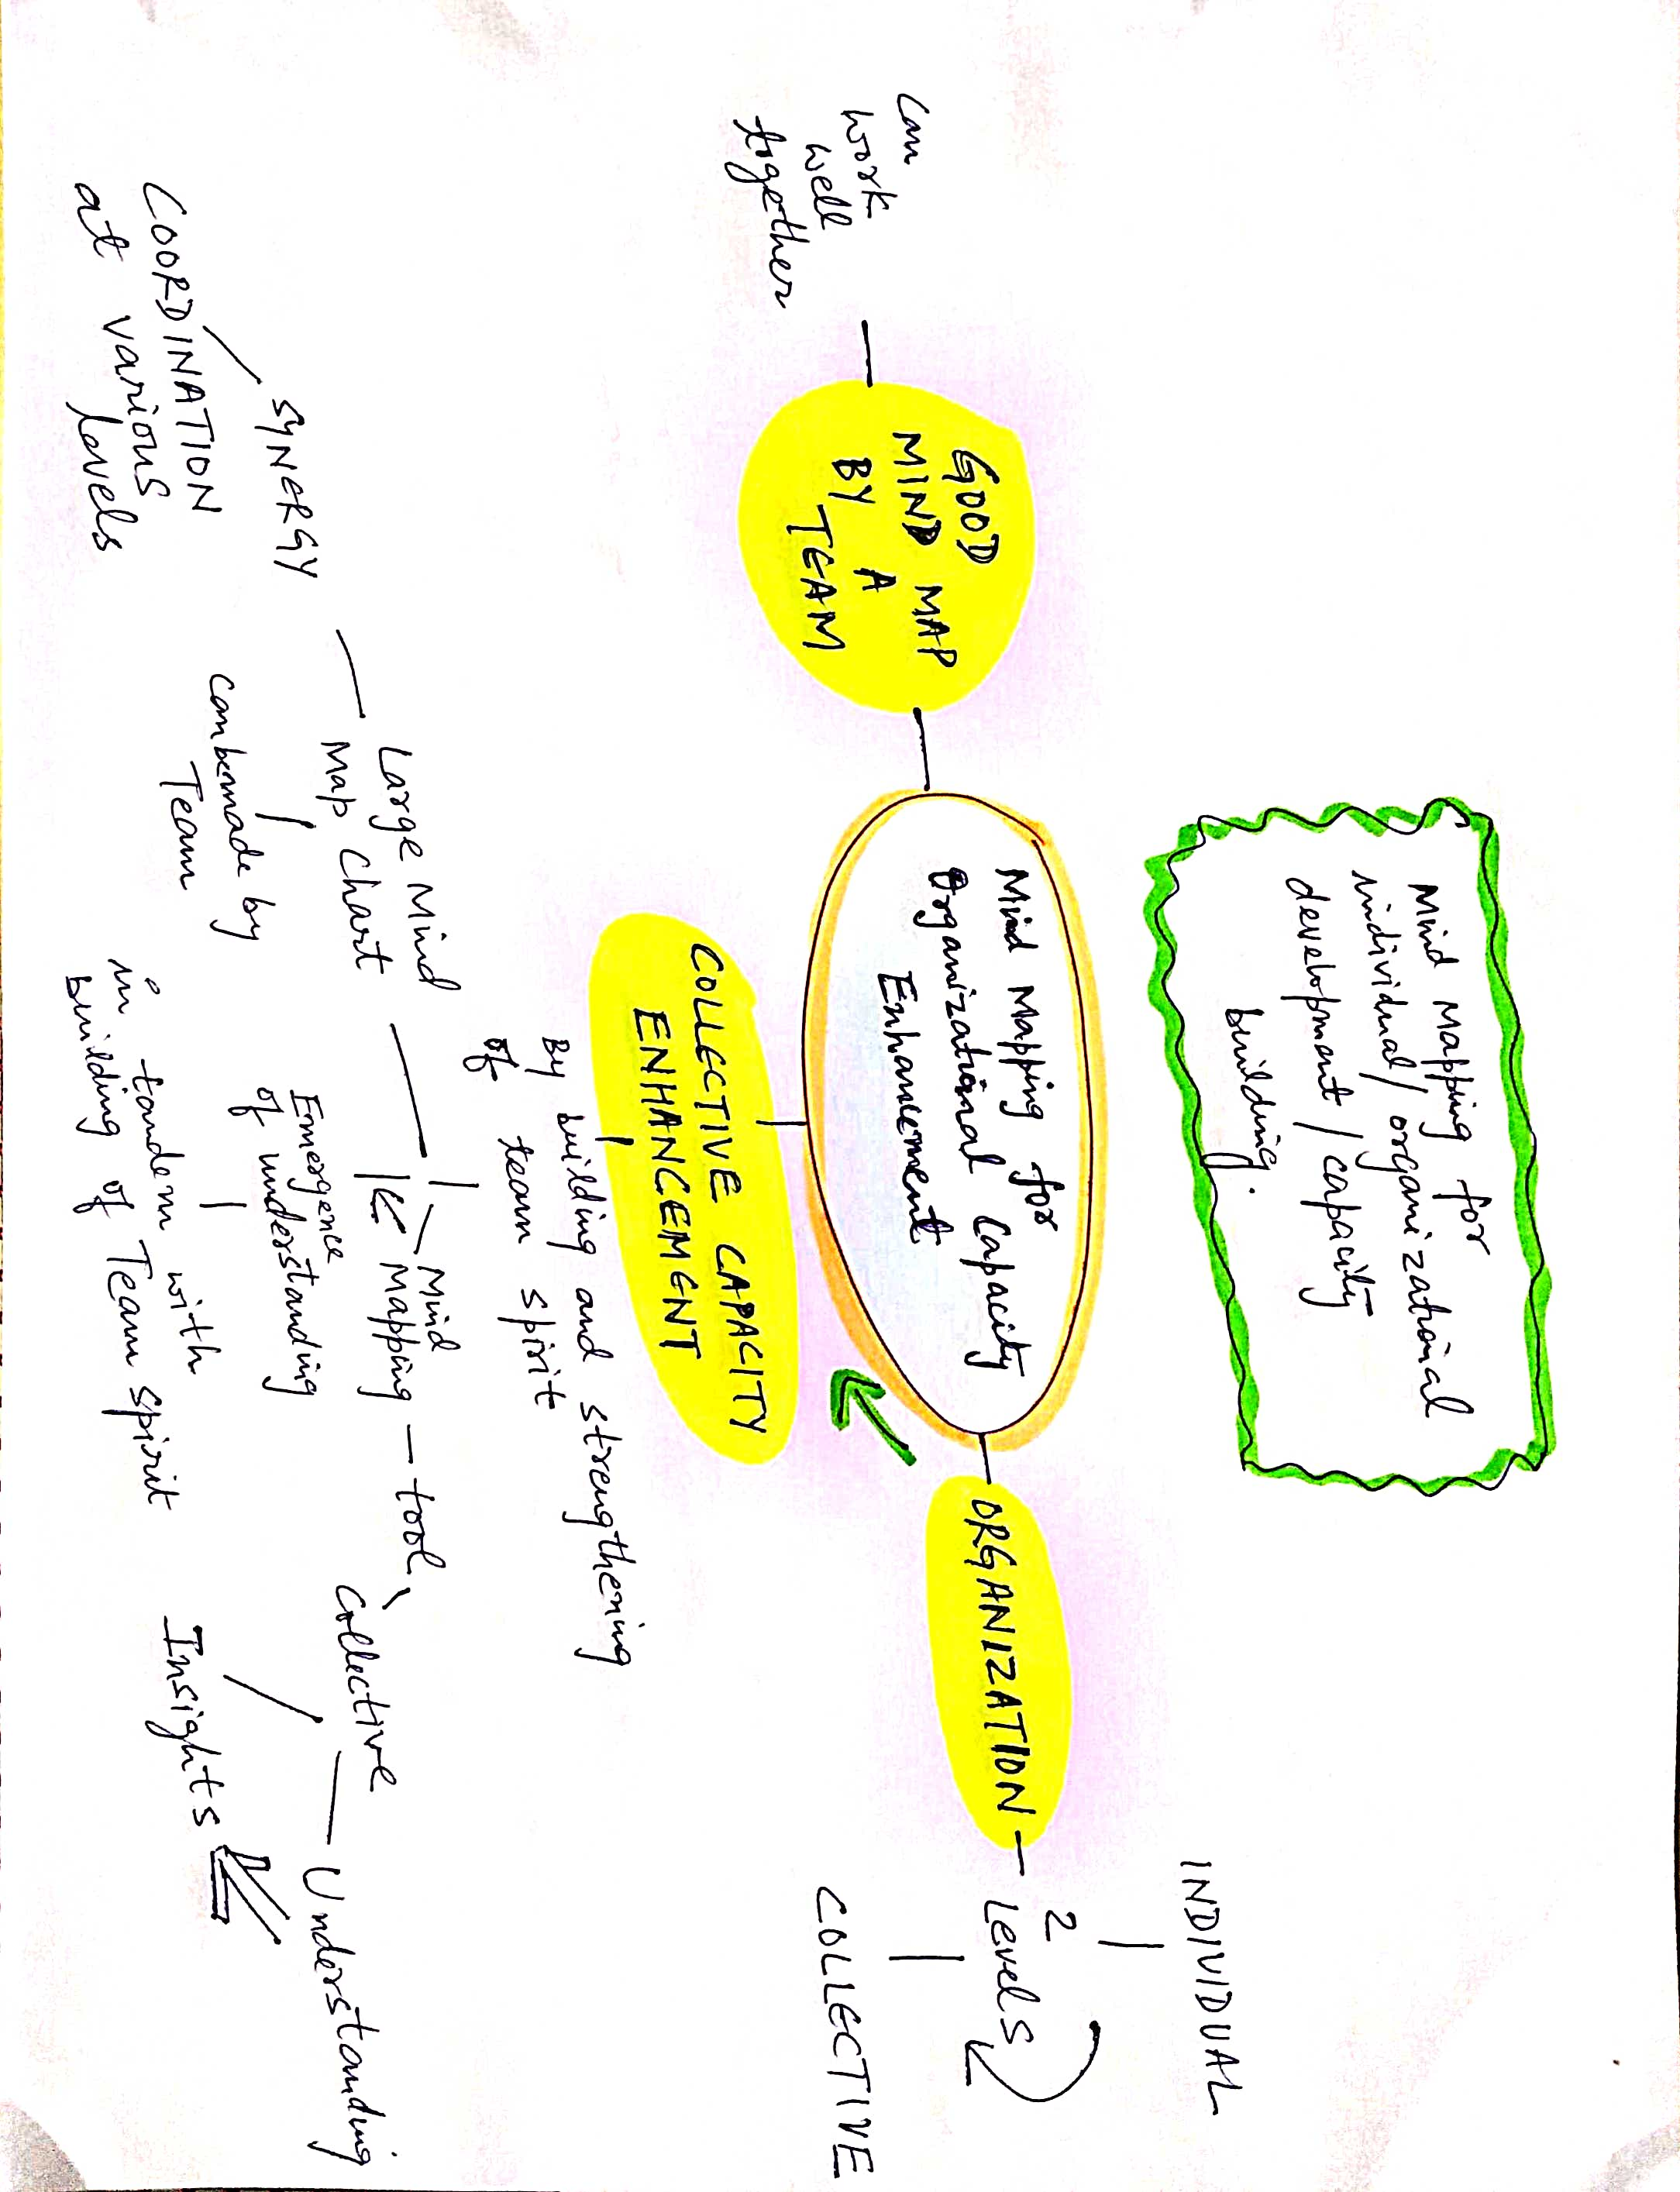 Mind Mapping for
individual/organizational
development/capacity
building.
Mind Mapping for
Organizational Capacity
Enhancement
GOOD
MIND MAP
BY A
TEAM
Can
work
well
together
ORGANIZATION
2
Levels
INDIVIDUAL
COLLECTIVE
COLLECTIVE CAPACITY
ENHANCEMENT
By building and strengthening
of team spirit
Mind
Mapping - tool
Collective
Understanding
Insights
Large Mind
Map Chart
can be made by
Team
SYNERGY
COORDINATION
at various
levels
Emergence
of understanding
in tandem with
building of Team spirit